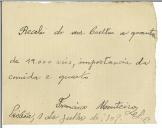 Recebi do sr. Coelho a quantia
de 19.000 reis, importancia da
comida e quarto
Francisco Monteiro
Lisboa, 1 de julho de 1909.